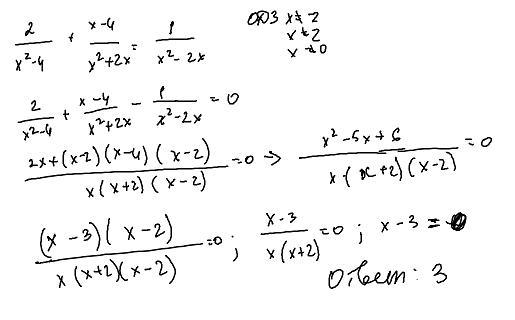 2/(x²-4) + (x-4)/(x²+2x) = 1/(x²-2x)
ОДЗ x≠-2
x≠2
x≠0
2/(x²-4) + (x-4)/(x²+2x) - 1/(x²-2x) = 0
(2x+(x-2)(x-4)(x-2))/(x(x+2)(x-2)) = 0 → (x²-5x+6)/(x·(x+2)(x-2)) = 0
((x-3)(x-2))/(x(x+2)(x-2)) = 0 ; (x-3)/(x(x+2)) = 0 ; x-3 = 0
Ответ: 3